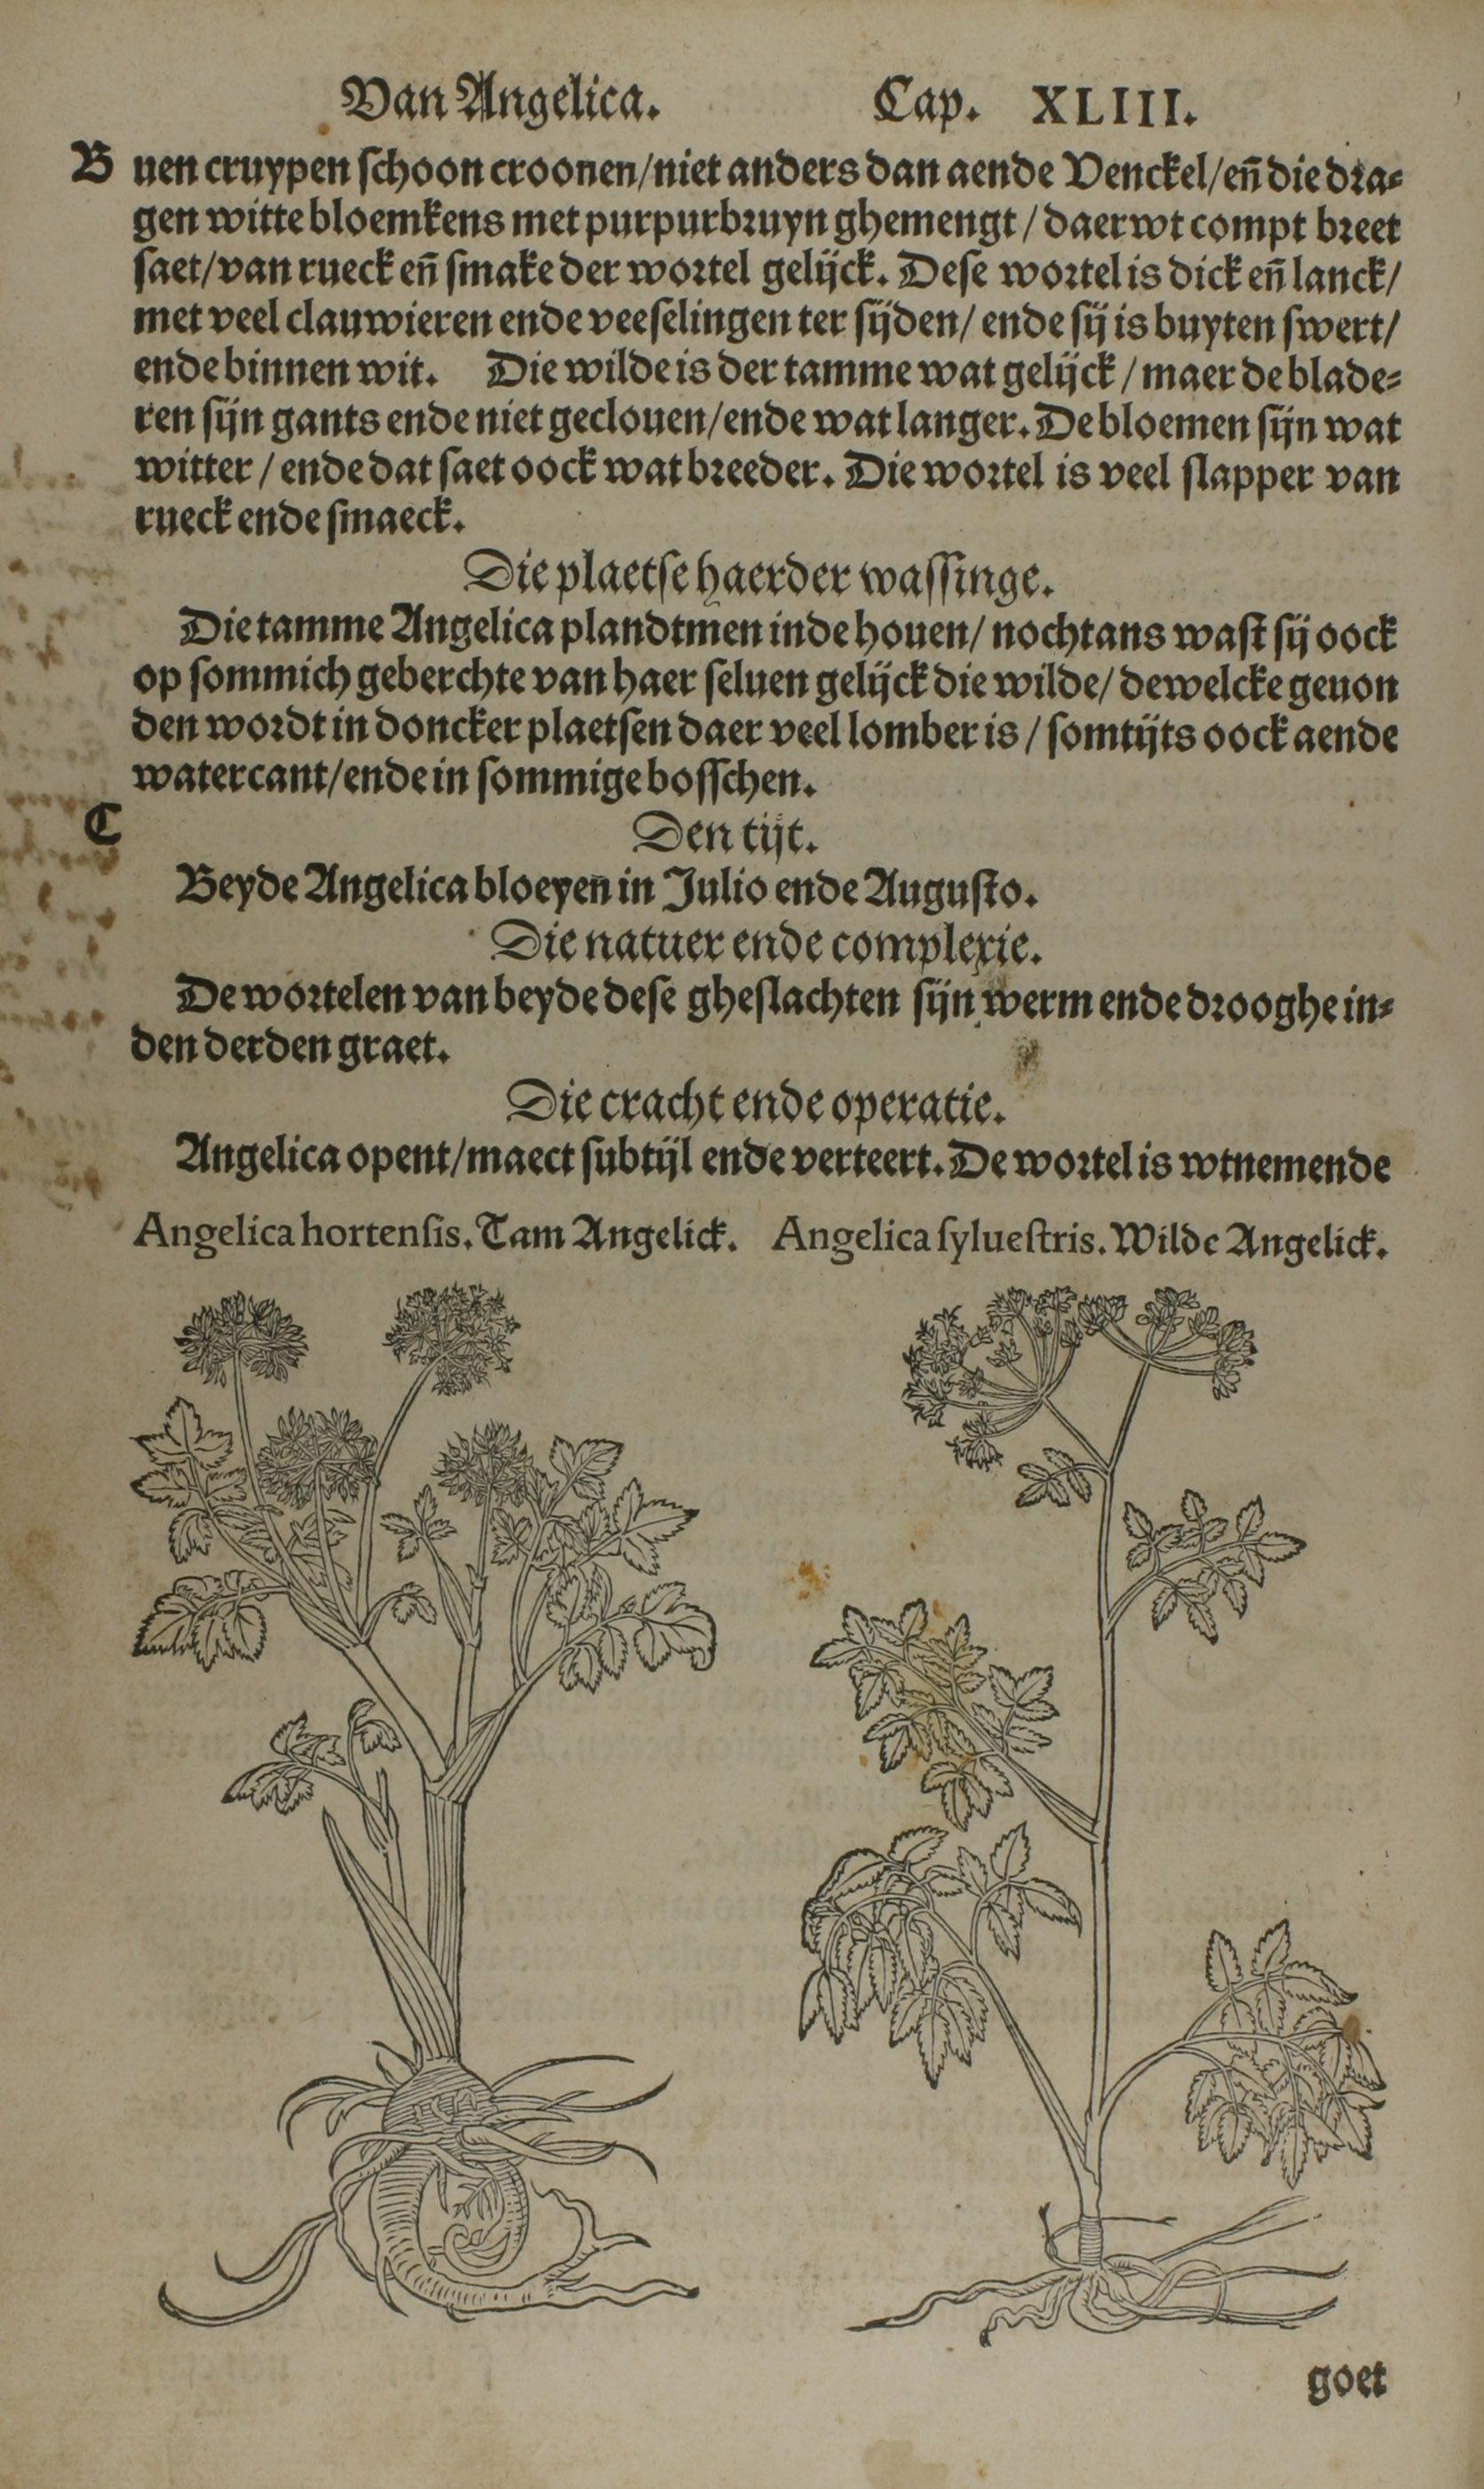 Van Angelica. Cap. XLIII.
B uen cruypen schoon croonen/niet anders dan aende Venckel/en̄ die dra-
gen witte bloemkens met purpurbruyn ghemengt / daer wt compt breet
saet/van rueck en̄ smake der wortel gelijck. Dese wortel is dick en̄ lanck/
met veel clauwieren ende veeselingen ter sijden/ ende sij is buyten swert/
ende binnen wit. Die wilde is der tamme wat gelijck / maer de blade-
ren sijn gants ende niet geclouen/ende wat langer. De bloemen sijn wat
witter / ende dat saet oock wat breeder. Die wortel is veel slapper van
rueck ende smaeck.
Die plaetse haerder wassinge.
Die tamme Angelica plandtmen inde houen/ nochtans wast sij oock
op sommich geberchte van haer seluen gelijck die wilde/ dewelcke geuon
den wordt in doncker plaetsen daer veel lomber is / somtijts oock aende
watercant/ende in sommige bosschen.
C Den tijt.
Beyde Angelica bloeyen in Julio ende Augusto.
Die natuer ende complexie.
De wortelen van beyde dese gheslachten sijn werm ende drooghe in-
den derden graet.
Die cracht ende operatie.
Angelica opent/maect subtijl ende verteert. De wortel is wtnemende
Angelica hortensis. Tam Angelick. Angelica syluestris. Wilde Angelick.
goet